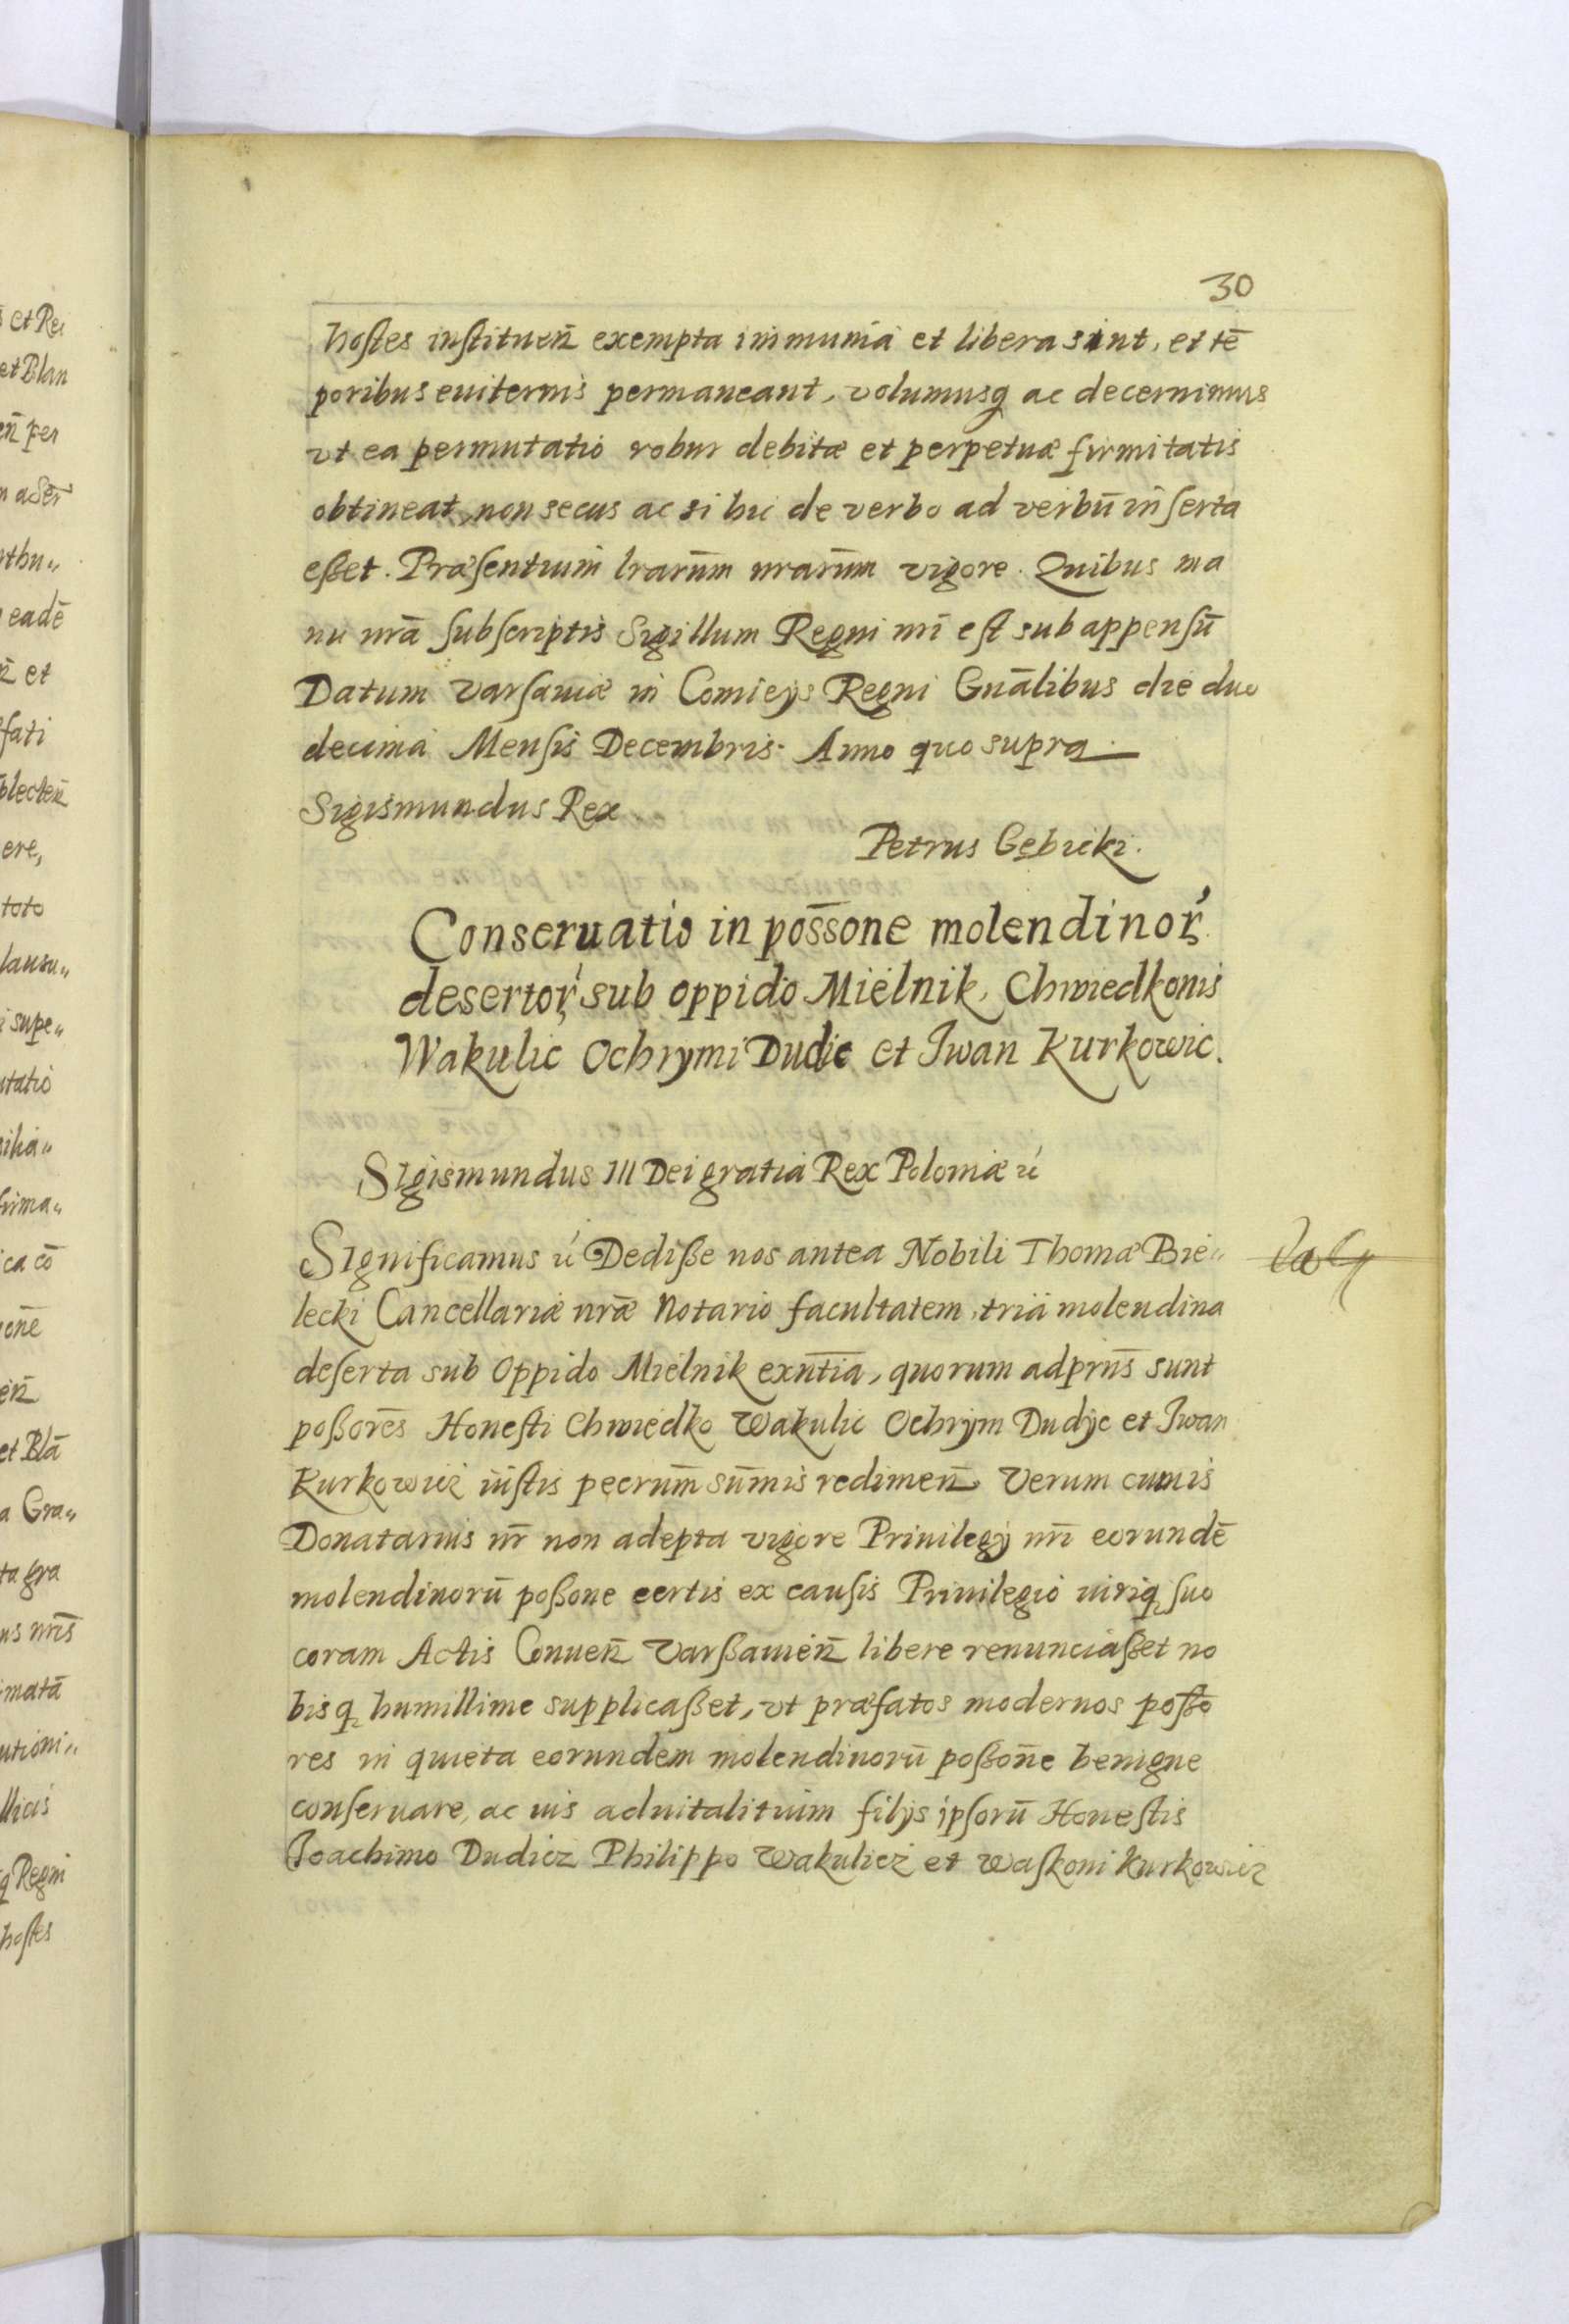 30
hostes instituen̄ exempta immunia et libera sint, et tē
poribus euiternis permaneant, volumusq ac decernimus
vt ea permutatio robur debitæ et perpetuæ firmitatis
obtineat, non secus ac si hic de verbo ad verbū inserta
eßet. Præsentium lrarūm nrarūm vigore. Quibus ma
nu nrā subscriptis Sigillum Regni nri est sub appensū
Datum Varsauiæ in Comicÿs Regni Gnālibus die duo
decima Mensis Decembris. Anno quo supra
Sigismundus Rex
Petrus Gębicki.
Conseruatio in poss̄one molendinoꝝ
desertoꝝ sub oppido Mielnik, Chwiedkonis
Wakulic Ochrymi Dudic et Iwan Kurkowic.
Sigismundus III Dei gratia Rex Poloniæ ɾć
Significamus ɾć Dediße nos antea Nobili Thomæ Bie„
lecki Cancellariæ nrǣ Notario facultatem, tria molendina
deserta sub Oppido Mielnik exn̄tia, quorum ad prn̄s sunt
poßorēs Honesti Chwiedko Wakulic Ochrym Dudÿc et Iwan
Kurkowicz iustis pecrūm sūmis redimen̄. Verum cum is
Donatarius nr̄ non adepta vigore Priuilegÿ nrī eorundē
molendinorū poßone certis ex causis Priuilegio iuriq suo
coram Actis Conuen̄ Varßauien̄ libere renunciaßet no
bisq humillime supplicaßet, vt præfatos modernos poßo
res in quieta eorundem molendinorū poßon̄e benigne
conseruare, ac ius aduitalitium filÿs ipsorū Honestis
Joachimo Dudicz Philippo Wakulicz et Waskoni Kurkowicz